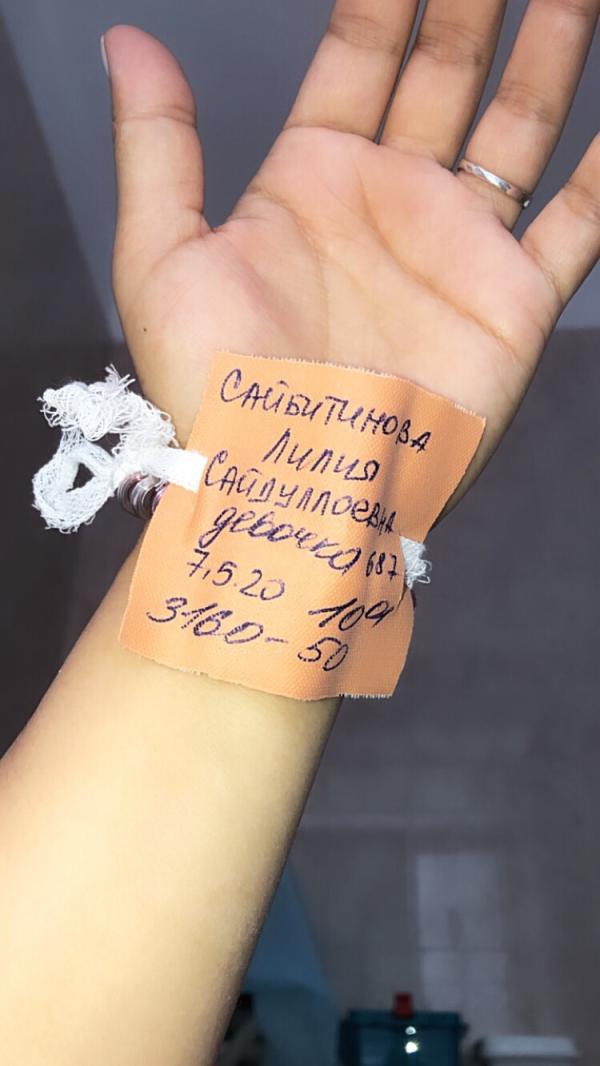 САЙБИТИНОВА
ЛИЛИЯ
САЙДУЛЛОЕВНА
девочка 687
7.5.20 10ч
3160-50